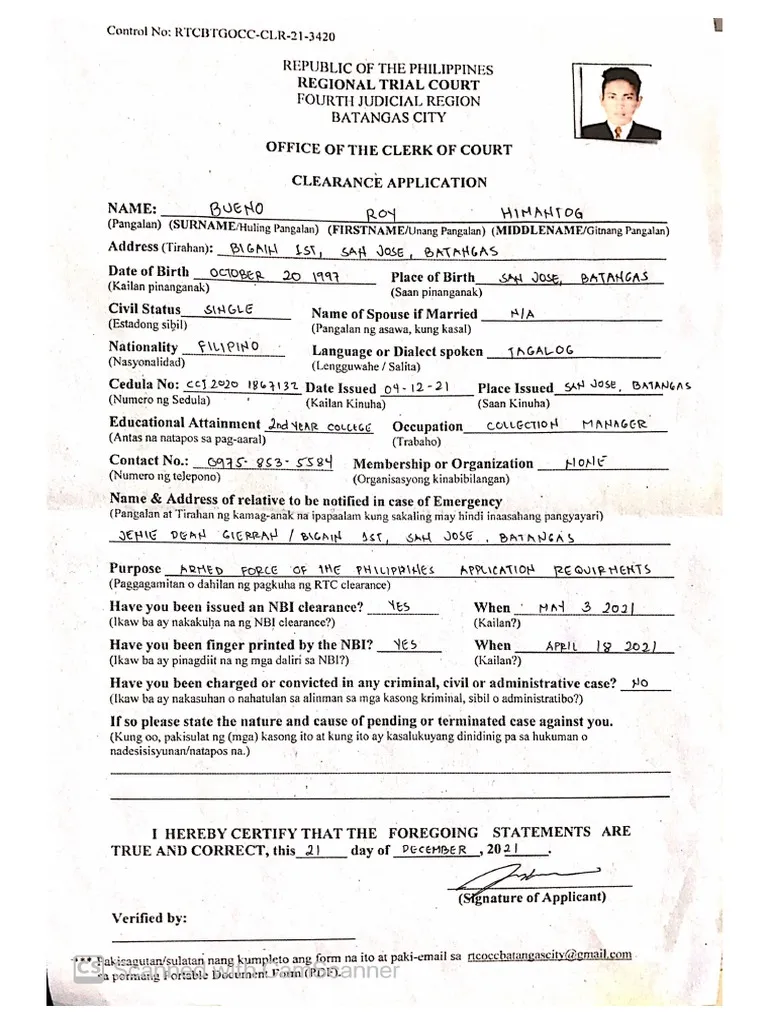 Control No: RTCBTGOCC-CLR-21-3420
REPUBLIC OF THE PHILIPPINES
REGIONAL TRIAL COURT
FOURTH JUDICIAL REGION
BATANGAS CITY
OFFICE OF THE CLERK OF COURT
CLEARANCE APPLICATION
NAME: BUENO ROY HIMANTOG
(Pangalan) (SURNAME/Huling Pangalan) (FIRSTNAME/Unang Pangalan) (MIDDLENAME/Gitnang Pangalan)
Address (Tirahan): BIGAIN 1ST, SAN JOSE, BATANGAS
Date of Birth OCTOBER 20 1997 Place of Birth SAN JOSE, BATANGAS
(Kailan pinanganak) (Saan pinanganak)
Civil Status SINGLE Name of Spouse if Married N/A
(Estadong sibil) (Pangalan ng asawa, kung kasal)
Nationality FILIPINO Language or Dialect spoken TAGALOG
(Nasyonalidad) (Lengguwahe / Salita)
Cedula No: CCI 2020 1867132 Date Issued 04-12-21 Place Issued SAN JOSE, BATANGAS
(Numero ng Sedula) (Kailan Kinuha) (Saan Kinuha)
Educational Attainment 2nd YEAR COLLEGE Occupation COLLECTION MANAGER
(Antas na natapos sa pag-aaral) (Trabaho)
Contact No.: 0975-853-5584 Membership or Organization NONE
(Numero ng telepono) (Organisasyong kinabibilangan)
Name & Address of relative to be notified in case of Emergency
(Pangalan at Tirahan ng kamag-anak na ipapaalam kung sakaling may hindi inaasahang pangyayari)
JENIE DEAN GIERRAN / BIGAIN 1ST, SAN JOSE, BATANGAS
Purpose ARMED FORCE OF THE PHILIPPINES APPLICATION REQUIRMENTS
(Paggagamitan o dahilan ng pagkuha ng RTC clearance)
Have you been issued an NBI clearance? YES When MAY 3 2021
(Ikaw ba ay nakakuha na ng NBI clearance?) (Kailan?)
Have you been finger printed by the NBI? YES When APRIL 18 2021
(Ikaw ba ay pinagdiit na ng mga daliri sa NBI?) (Kailan?)
Have you been charged or convicted in any criminal, civil or administrative case? NO
(Ikaw ba ay nakasuhan o nahatulan sa alinman sa mga kasong kriminal, sibil o administratibo?)
If so please state the nature and cause of pending or terminated case against you.
(Kung oo, pakisulat ng (mga) kasong ito at kung ito ay kasalukuyang dinidinig pa sa hukuman o
nadesisisyunan/natapos na.)
I HEREBY CERTIFY THAT THE FOREGOING STATEMENTS ARE
TRUE AND CORRECT, this 21 day of DECEMBER, 2021.
(Signature of Applicant)
Verified by:
*** Pakisagutan/sulatan nang kumpleto ang form na ito at paki-email sa rtcoccbatangascity@gmail.com
sa pormang Portable Document Form (PDF).
CS Scanned with CamScanner